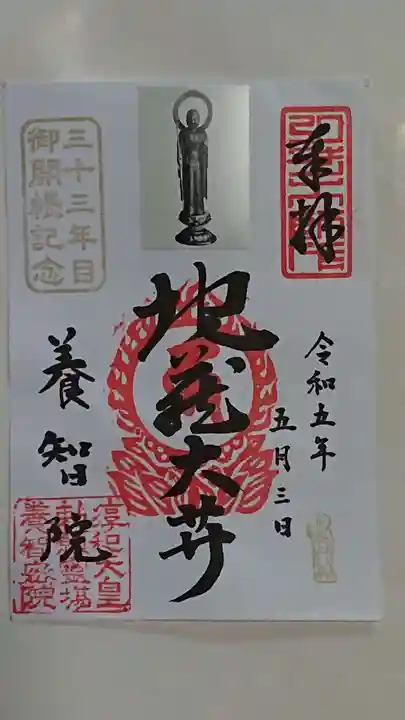 奉拝
令和五年
五月三日
地蔵大菩
三十三年目
御開帳記念
養智院
淳和天皇
勅願霊場
養智密院